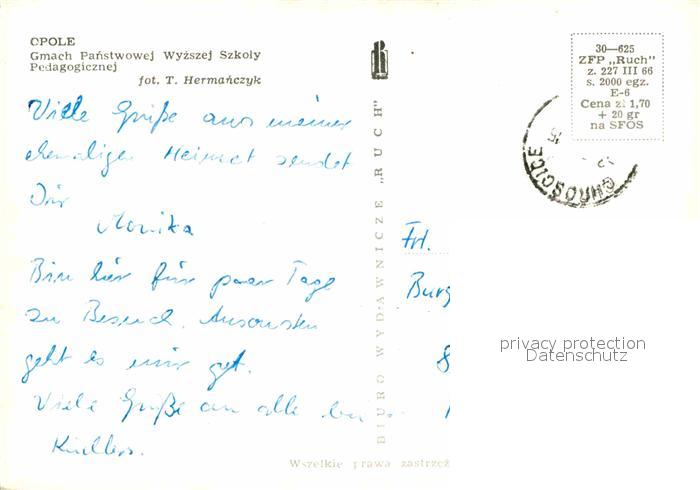 OPOLE
Gmach Państwowej Wyższej Szkoły
Pedagogicznej
fot. T. Hermańczyk
Viele Grüße aus meiner
ehemaligen Heimat sendet
Dir
Monika
Bin hier für paar Tage
zu Besuch. Ansonsten
geht es mir gut.
Viele Grüße an alle
BIURO WYDAWNICZE „RUCH"
Wszelkie prawa zastrzeż
30—625
ZFP „Ruch"
z. 227 III 66
s. 2000 egz.
E-6
Cena zł 1,70
+ 20 gr
na SFOS
15
Frl.
Burg
8
privacy protection
Datenschutz